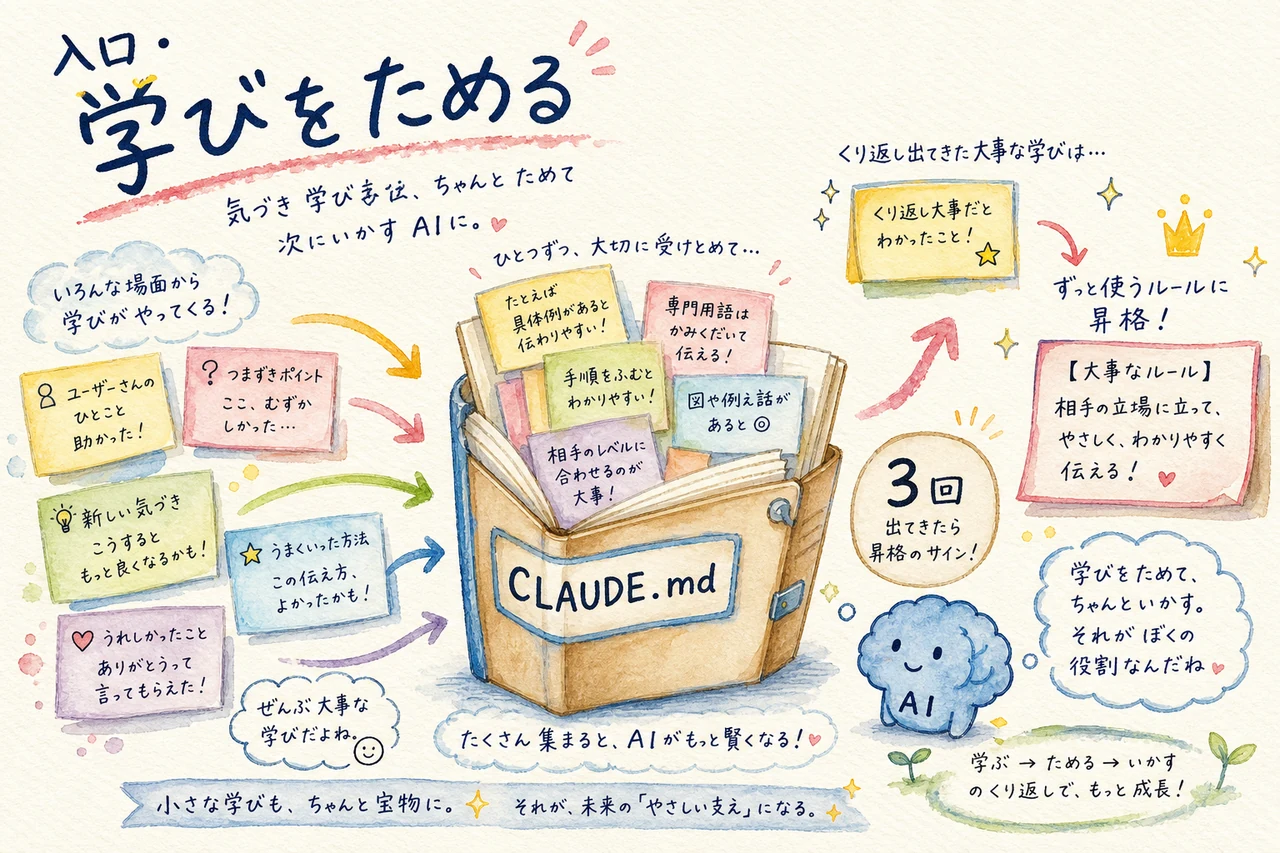 入口・
学びをためる
気づき 学び、ちゃんと ためて
次にいかす AIに。
いろんな場面から
学びが やってくる!
ユーザーさんの
ひとこと
助かった!
? つまずきポイント
ここ、むずか
しかった…
新しい気づき
こうすると
もっと良くなるかも!
うまくいった方法
この伝え方、
よかったかも!
うれしかったこと
ありがとうって
言ってもらえた!
ぜんぶ 大事な
学びだよね。
ひとつずつ、大切に受けとめて…
たとえば
具体例があると
伝わりやすい!
専門用語は
かみくだいて
伝える!
手順をふむと
わかりやすい!
図や例え話が
あると ◎
相手のレベルに
合わせるのが
大事!
CLAUDE.md
たくさん 集まると、AIがもっと賢くなる!
くり返し出てきた大事な学びは…
くり返し大事だと
わかったこと!
ずっと使うルールに
昇格!
【大事なルール】
相手の立場に立って、
やさしく、わかりやすく
伝える!
3回
出てきたら
昇格のサイン!
AI
学びをためて、
ちゃんといかす。
それが ぼくの
役割なんだね
学ぶ → ためる → いかす
のくり返しで、もっと成長!
小さな学びも、ちゃんと宝物に。 それが、未来の「やさしい支え」になる。